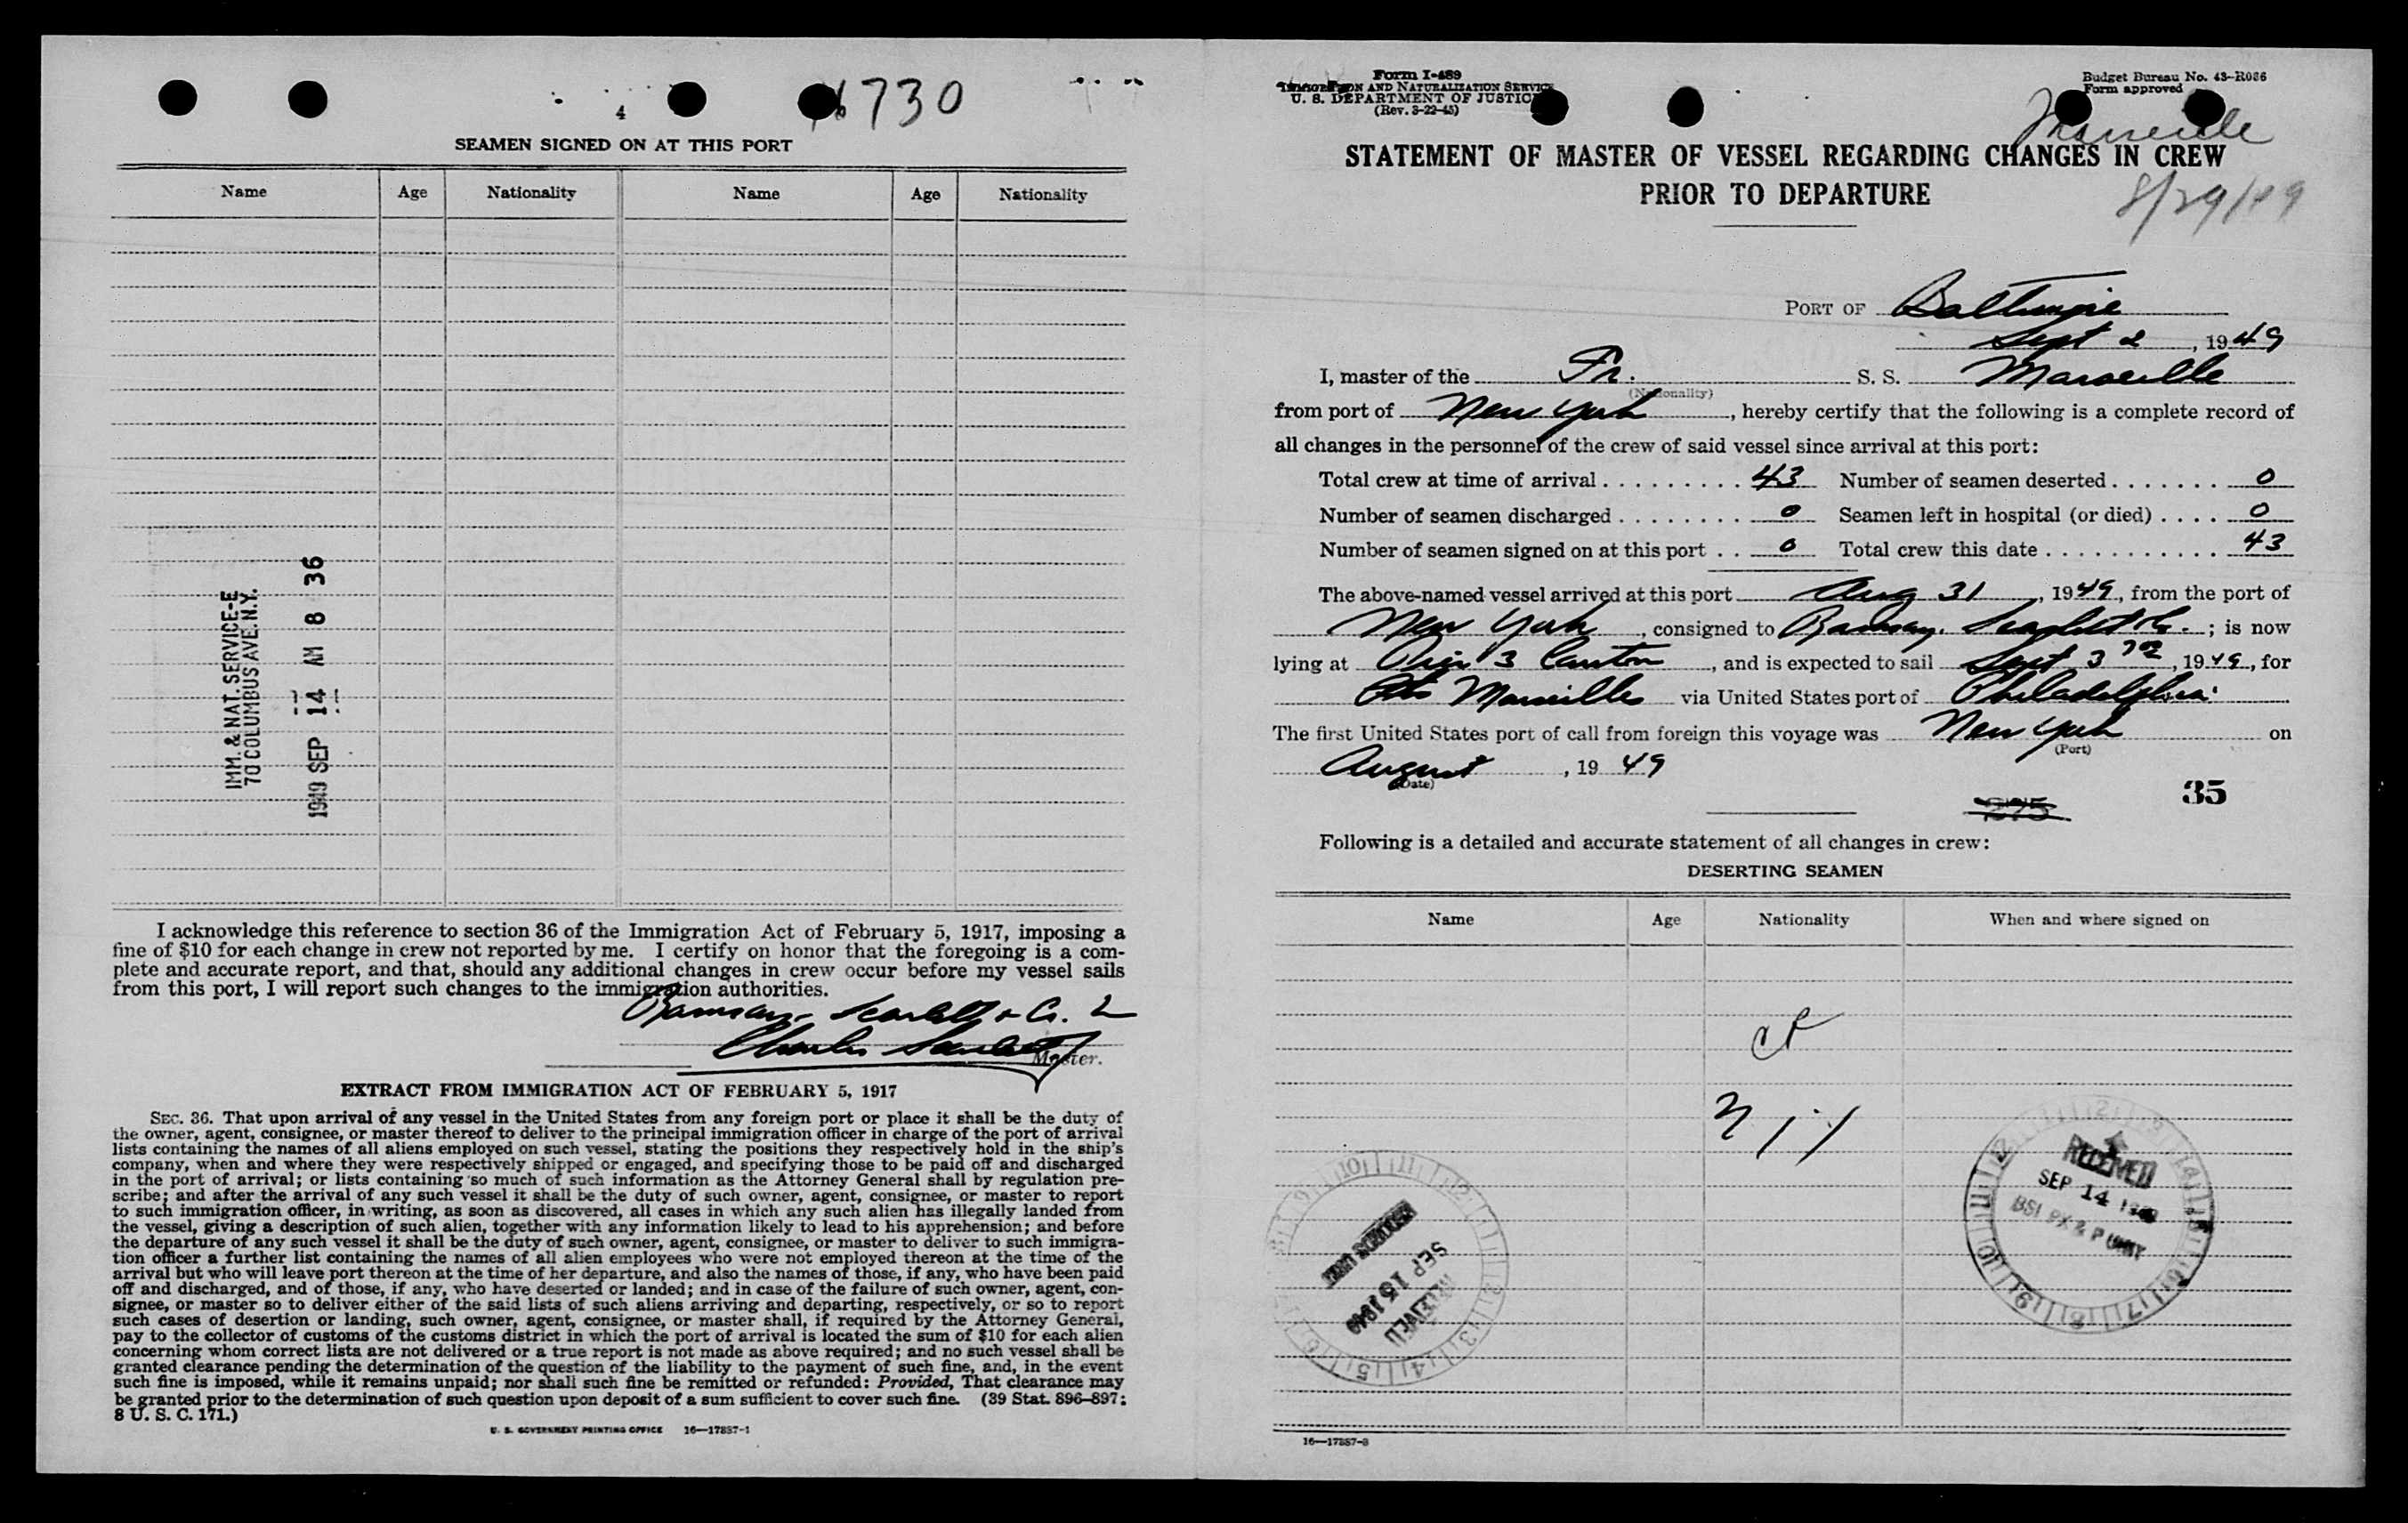 4
730
SEAMEN SIGNED ON AT THIS PORT
Name Age Nationality Name Age Nationality
IMM. & NAT. SERVICE-E
70 COLUMBUS AVE. N.Y.
1949 SEP 14 AM 8 36
I acknowledge this reference to section 36 of the Immigration Act of February 5, 1917, imposing a
fine of $10 for each change in crew not reported by me. I certify on honor that the foregoing is a com-
plete and accurate report, and that, should any additional changes in crew occur before my vessel sails
from this port, I will report such changes to the immigration authorities.
Ramsay, Scarlett & Co.
Charles Scarlett
Master.
EXTRACT FROM IMMIGRATION ACT OF FEBRUARY 5, 1917
SEC. 36. That upon arrival of any vessel in the United States from any foreign port or place it shall be the duty of
the owner, agent, consignee, or master thereof to deliver to the principal immigration officer in charge of the port of arrival
lists containing the names of all aliens employed on such vessel, stating the positions they respectively hold in the ship's
company, when and where they were respectively shipped or engaged, and specifying those to be paid off and discharged
in the port of arrival; or lists containing so much of such information as the Attorney General shall by regulation pre-
scribe; and after the arrival of any such vessel it shall be the duty of such owner, agent, consignee, or master to report
to such immigration officer, in writing, as soon as discovered, all cases in which any such alien has illegally landed from
the vessel, giving a description of such alien, together with any information likely to lead to his apprehension; and before
the departure of any such vessel it shall be the duty of such owner, agent, consignee, or master to deliver to such immigra-
tion officer a further list containing the names of all alien employees who were not employed thereon at the time of the
arrival but who will leave port thereon at the time of her departure, and also the names of those, if any, who have been paid
off and discharged, and of those, if any, who have deserted or landed; and in case of the failure of such owner, agent, con-
signee, or master so to deliver either of the said lists of such aliens arriving and departing, respectively, or so to report
such cases of desertion or landing, such owner, agent, consignee, or master shall, if required by the Attorney General,
pay to the collector of customs of the customs district in which the port of arrival is located the sum of $10 for each alien
concerning whom correct lists are not delivered or a true report is not made as above required; and no such vessel shall be
granted clearance pending the determination of the question of the liability to the payment of such fine, and, in the event
such fine is imposed, while it remains unpaid; nor shall such fine be remitted or refunded: Provided, That clearance may
be granted prior to the determination of such question upon deposit of a sum sufficient to cover such fine. (39 Stat. 896-897;
8 U. S. C. 171.)
U. S. GOVERNMENT PRINTING OFFICE 16—17887-1
Form I-489
IMMIGRATION AND NATURALIZATION SERVICE
U. S. DEPARTMENT OF JUSTICE
(Rev. 3-22-45)
Budget Bureau No. 43-R086
Form approved
Marseille
STATEMENT OF MASTER OF VESSEL REGARDING CHANGES IN CREW
PRIOR TO DEPARTURE
8/29/49
PORT OF Baltimore
Sept 2, 1949
I, master of the Fr. S. S. Marseille
(Nationality)
from port of New York, hereby certify that the following is a complete record of
all changes in the personnel of the crew of said vessel since arrival at this port:
Total crew at time of arrival . . . . . . . . . 43 Number of seamen deserted . . . . . . . 0
Number of seamen discharged . . . . . . . . 0 Seamen left in hospital (or died) . . . . 0
Number of seamen signed on at this port . . 0 Total crew this date . . . . . . . . . . . . 43
The above-named vessel arrived at this port Aug 31, 1949, from the port of
New York, consigned to Ramsay, Scarlett Co.; is now
lying at Pier 3 Canton, and is expected to sail Sept 3, 1949, for
Marseille via United States port of Philadelphia
The first United States port of call from foreign this voyage was New York on
(Port)
August, 1949
(Date)
35
Following is a detailed and accurate statement of all changes in crew:
DESERTING SEAMEN
Name Age Nationality When and where signed on
Nil
RECEIVED
SEP 14 1949
SEP 15 1949
RECEIVED